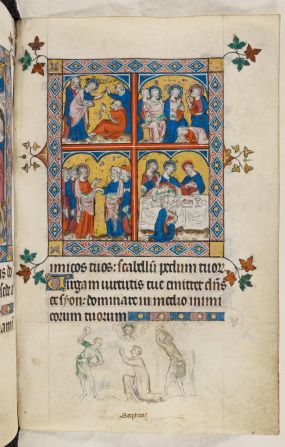 imicos tuos: scabellum pedum tuor
Uirgam uirtutis tue emittet dns
ex syon: dominare in medio inimi
corum tuorum